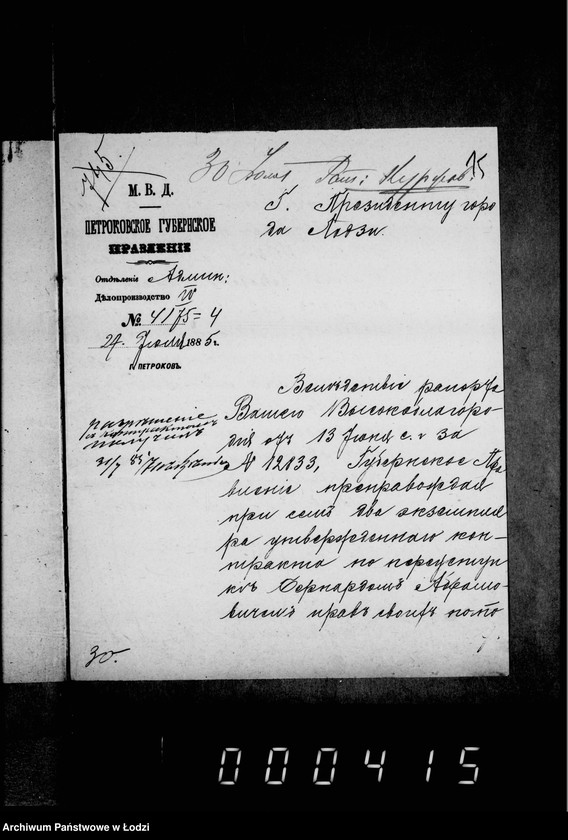 745.
30 Июля
75
М. В. Д.
ПЕТРОКОВСКОЕ ГУБЕРНСКОЕ
ПРАВЛЕНІЕ
Отдѣленіе Админ:
Дѣлопроизводство IV
№ 4175=4
27 Июля 1885 г.
Г. ПЕТРОКОВЪ.
Г. Президенту горо
да Лодзи.
разрѣшение
получилъ
31/7 85
Вслѣдствіе рапорта
Вашего Высокоблагоро-
дія отъ 13 Іюня с. г за
№ 12133, Губернское Пра
вленіе препровождая
при семъ два экземпля
ра утвержденнаго кон-
тракта по переступ
кѣ Бернардомъ Абрамо-
вичемъ правъ своихъ
30.
000415
Archiwum Państwowe w Łodzi